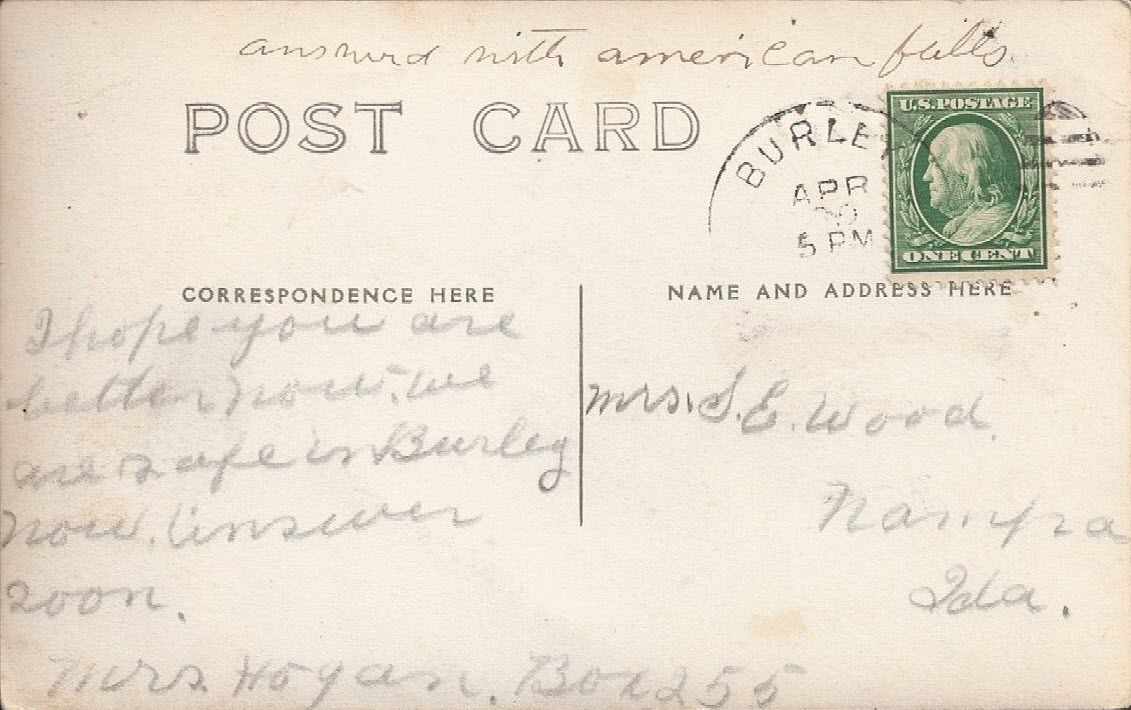 answerd with american falls
POST CARD
BURLEY
APR
5 PM
U.S. POSTAGE
ONE CENT
CORRESPONDENCE HERE
NAME AND ADDRESS HERE
I hope you are
better now. we
are safe in Burley
now. Answer
soon.
Mrs Hogan. Box 255
Mrs. S. E. Wood.
Nampa
Ida.